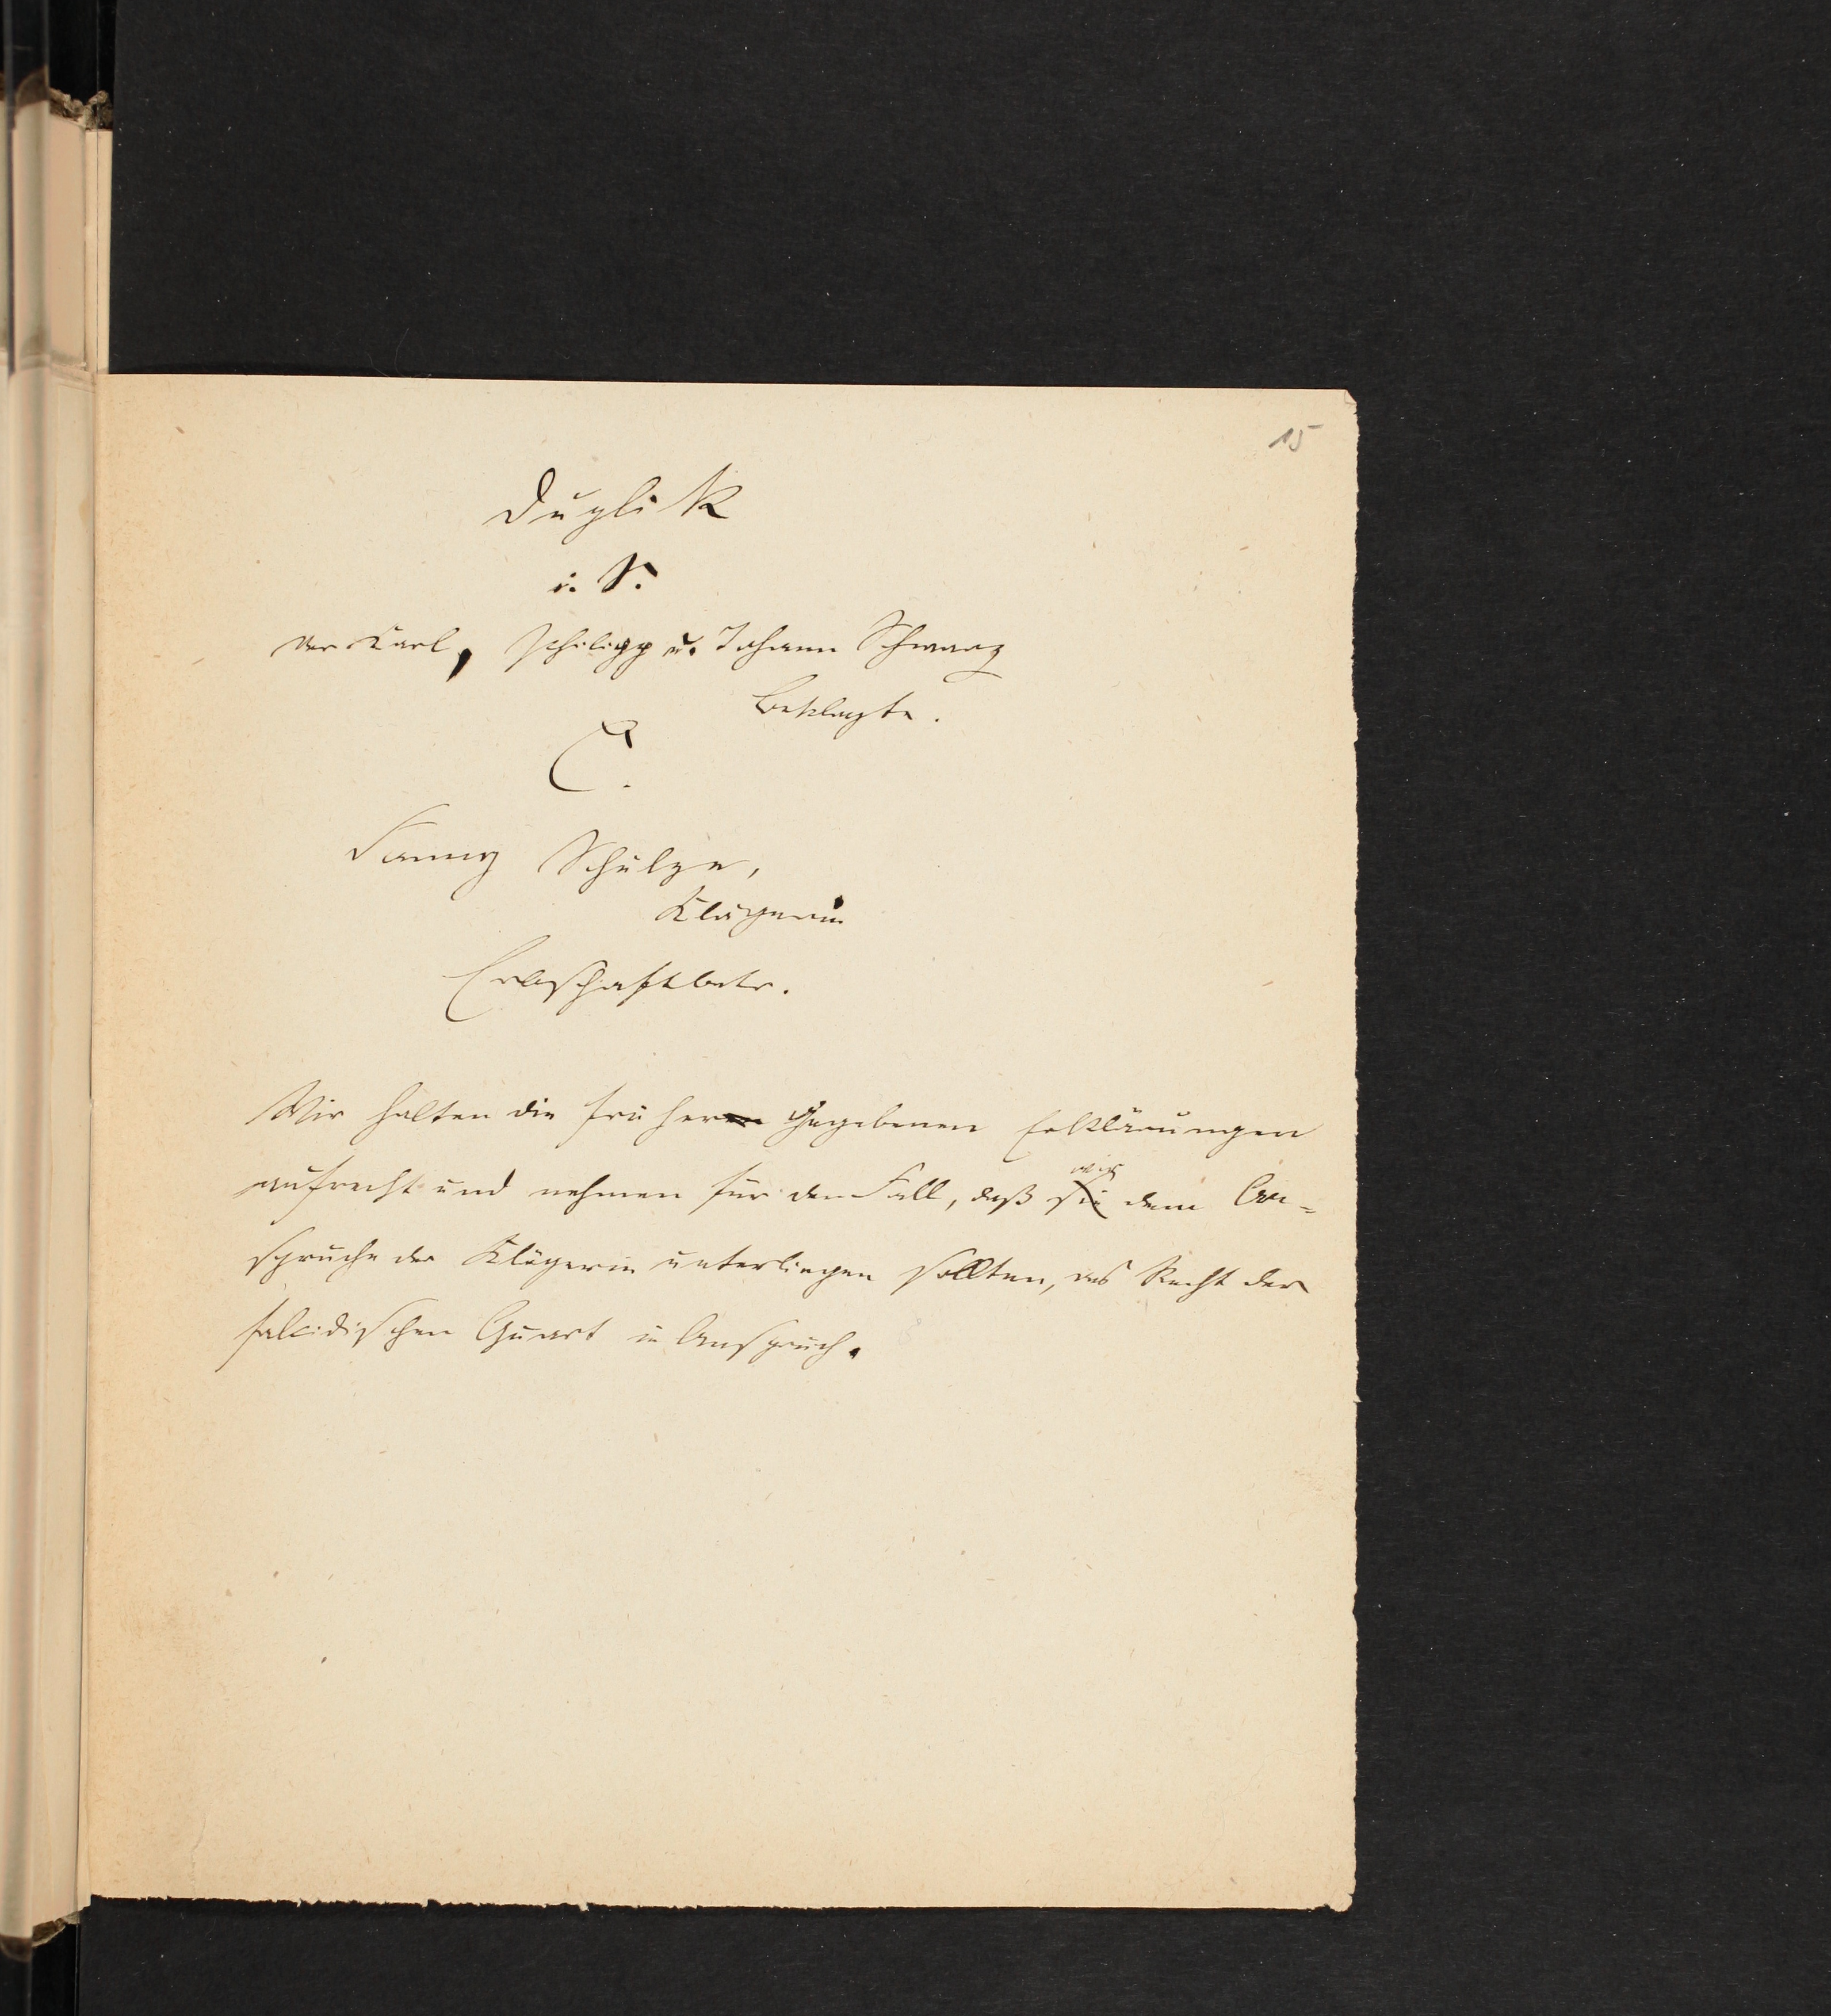 15
Duplik
i. S.
der Karl, Philipp u. Johann Schwarz
Beklagte.
C.
Fanny Schulze,
Klägerin
Erbschaft betr.
Wir halten die früher gegebenen Erklärungen
aufrecht und nehmen für den Fall, daß wir dem An-
spruche der Klägerin unterliegen sollten, das Recht der
falcidischen Quart in Anspruch.